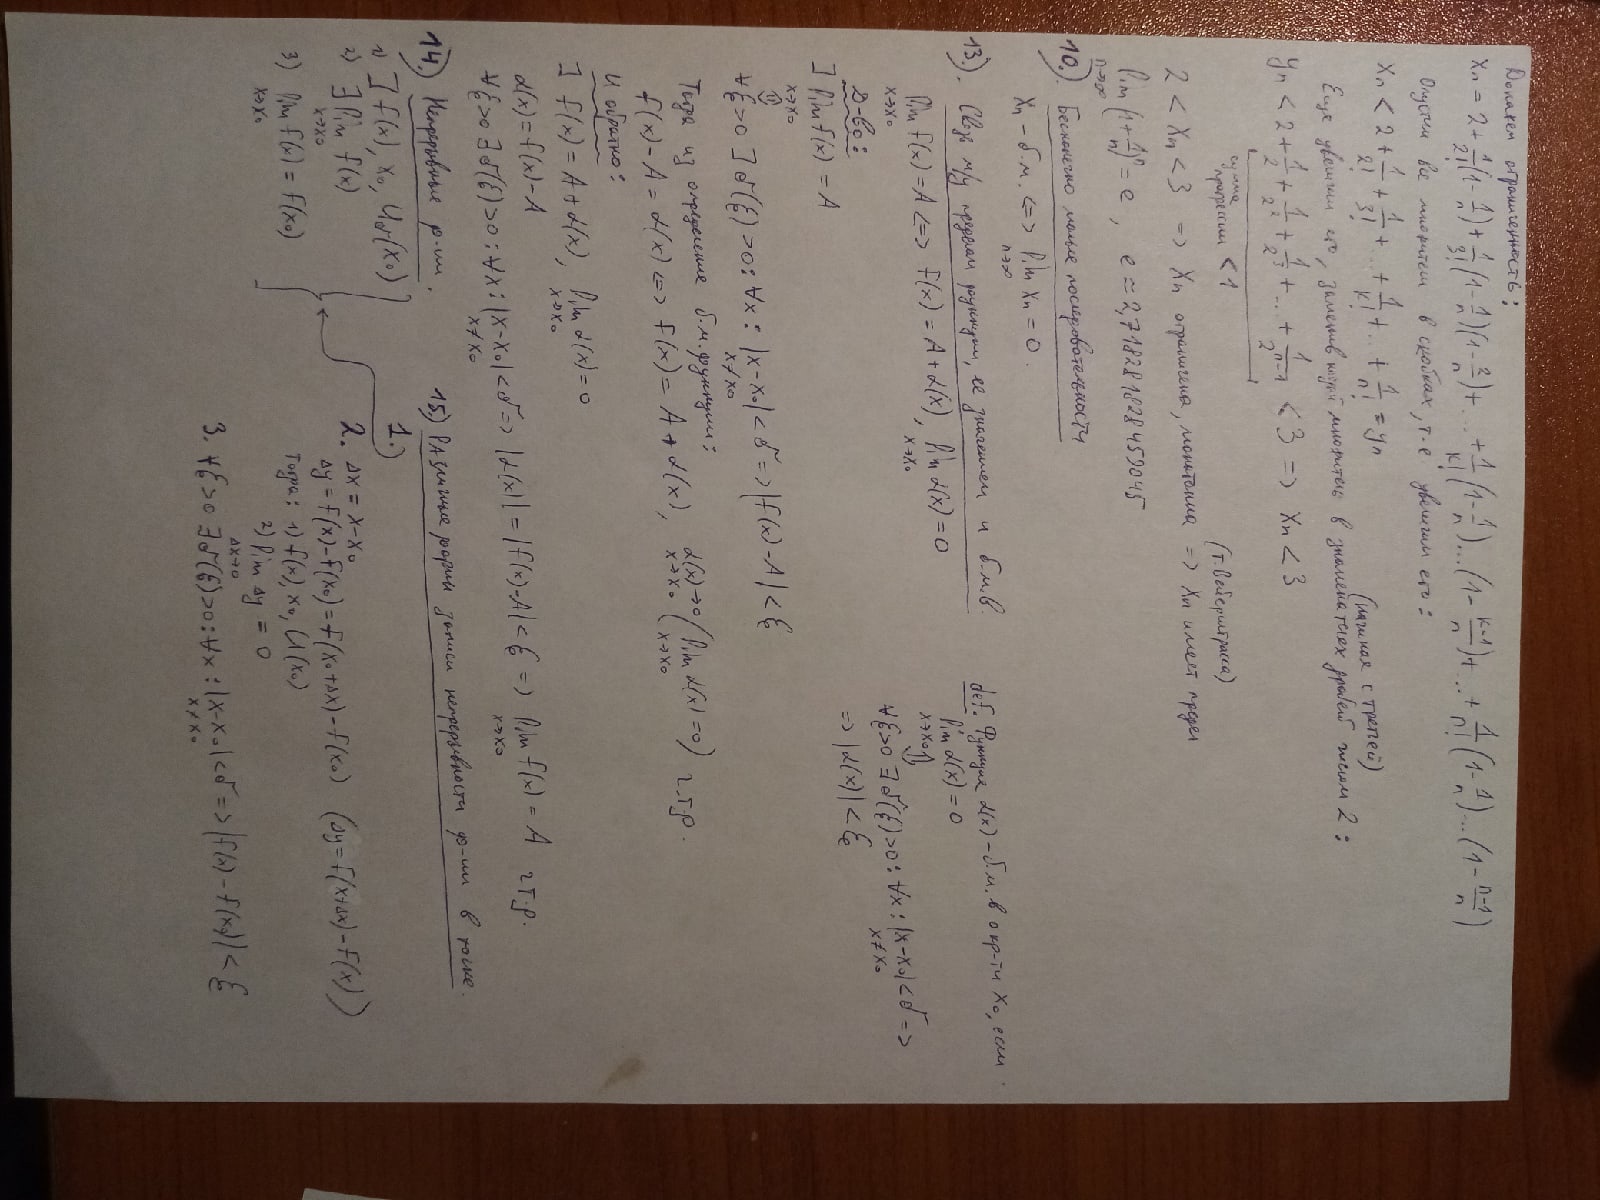 Докажем ограниченность:
Xn = 2 + 1/2! (1 - 1/n) + 1/3! (1 - 1/n)(1 - 2/n) + ... + 1/k! (1 - 1/n)...(1 - (k-1)/n) + ... + 1/n! (1 - 1/n)...(1 - (n-1)/n)
Опустим все множители в скобках, т.е. увеличим его:
Xn < 2 + 1/2! + 1/3! + ... + 1/k! + ... + 1/n! = yn
(начиная с третьей)
Еще увеличим его, заменив каждый множитель в знаменателях дробей числом 2:
yn < 2 + 1/2 + 1/2² + 1/2³ + ... + 1/2ⁿ⁻¹ < 3 => Xn < 3
сумма прогрессии < 1
(т. Вейерштрасса)
2 < Xn < 3 => Xn ограничена, монотонна => Xn имеет предел
lim n→∞ (1 + 1/n)ⁿ = e, e ≈ 2,718281828459045
10.). Бесконечно малые последовательности
Xn - б.м. <=> lim n→∞ Xn = 0.
13.). Связь м/у пределом функции, ее значением и б.м.в.
lim x→x₀ f(x) = A <=> f(x) = A + α(x), lim x→x₀ α(x) = 0
def. Функция α(x) - б.м. в окр-ти x₀, если
lim x→x₀ α(x) = 0
⇕
∀ξ>0 ∃δ(ξ)>0: ∀x: |x-x₀|<δ x≠x₀ =>
=> |α(x)| < ξ
Д-во:
∃ lim x→x₀ f(x) = A
⇕
∀ξ>0 ∃δ(ξ)>0: ∀x: |x-x₀|<δ x≠x₀ => |f(x)-A| < ξ
Тогда из определение б.м. функции:
f(x) - A = α(x) <=> f(x) = A + α(x), α(x)→0 x→x₀ (lim x→x₀ α(x) = 0) ч.т.д.
И обратно:
∃ f(x) = A + α(x), lim x→x₀ α(x) = 0
α(x) = f(x) - A
∀ξ>0 ∃δ(ξ)>0: ∀x: |x-x₀|<δ x≠x₀ => |α(x)| = |f(x)-A| < ξ => lim x→x₀ f(x) = A ч.т.д.
14.) Непрерывные ф-ии.
1) ∃ f(x), x₀, Uδ(x₀)
2) ∃ lim x→x₀ f(x)
3) lim x→x₀ f(x) = f(x₀)
15.) Различные формы записи непрерывности ф-ии в точке.
1.)
2. Δx = x-x₀
Δy = f(x)-f(x₀) = f(x₀+Δx)-f(x₀) (Δy = f(x+Δx)-f(x))
тогда: 1) f(x), x₀, U(x₀)
2) lim Δx→0 Δy = 0
3. ∀ξ>0 ∃δ(ξ)>0: ∀x: |x-x₀|<δ x≠x₀ => |f(x)-f(x₀)| < ξ